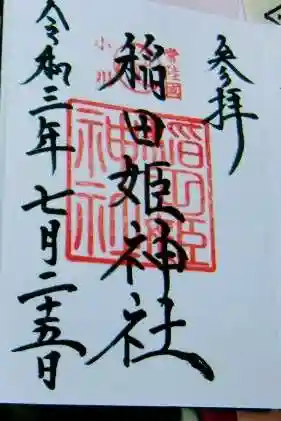 参拝
常陸國
小川
稲田姫神社
稲田姫神社
令和三年七月二十五日